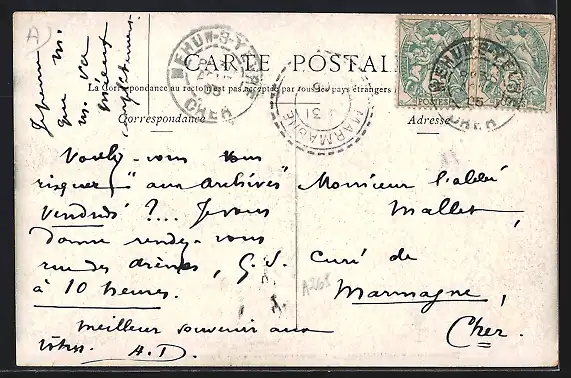 A
MEHUN-S-YEVRE
CHER
CARTE POSTALE
La Correspondance au recto n'est pas acceptée par tous les pays étrangers
Correspondance
Adresse
MARMAGNE
31
POSTES
POSTES
MEHUN-S-YEVRE
05
CHER
que M.
va
mieux
Voulez-vous vous
risquer "aux archives"
vendredi ?... Je vous
donne rendez-vous
rue des arènes, G. S.
à 10 heures.
Meilleur souvenir aux
vôtres. A.D.
Monsieur l'abbé
Mallet,
curé de
Marmagne,
Cher.
A268